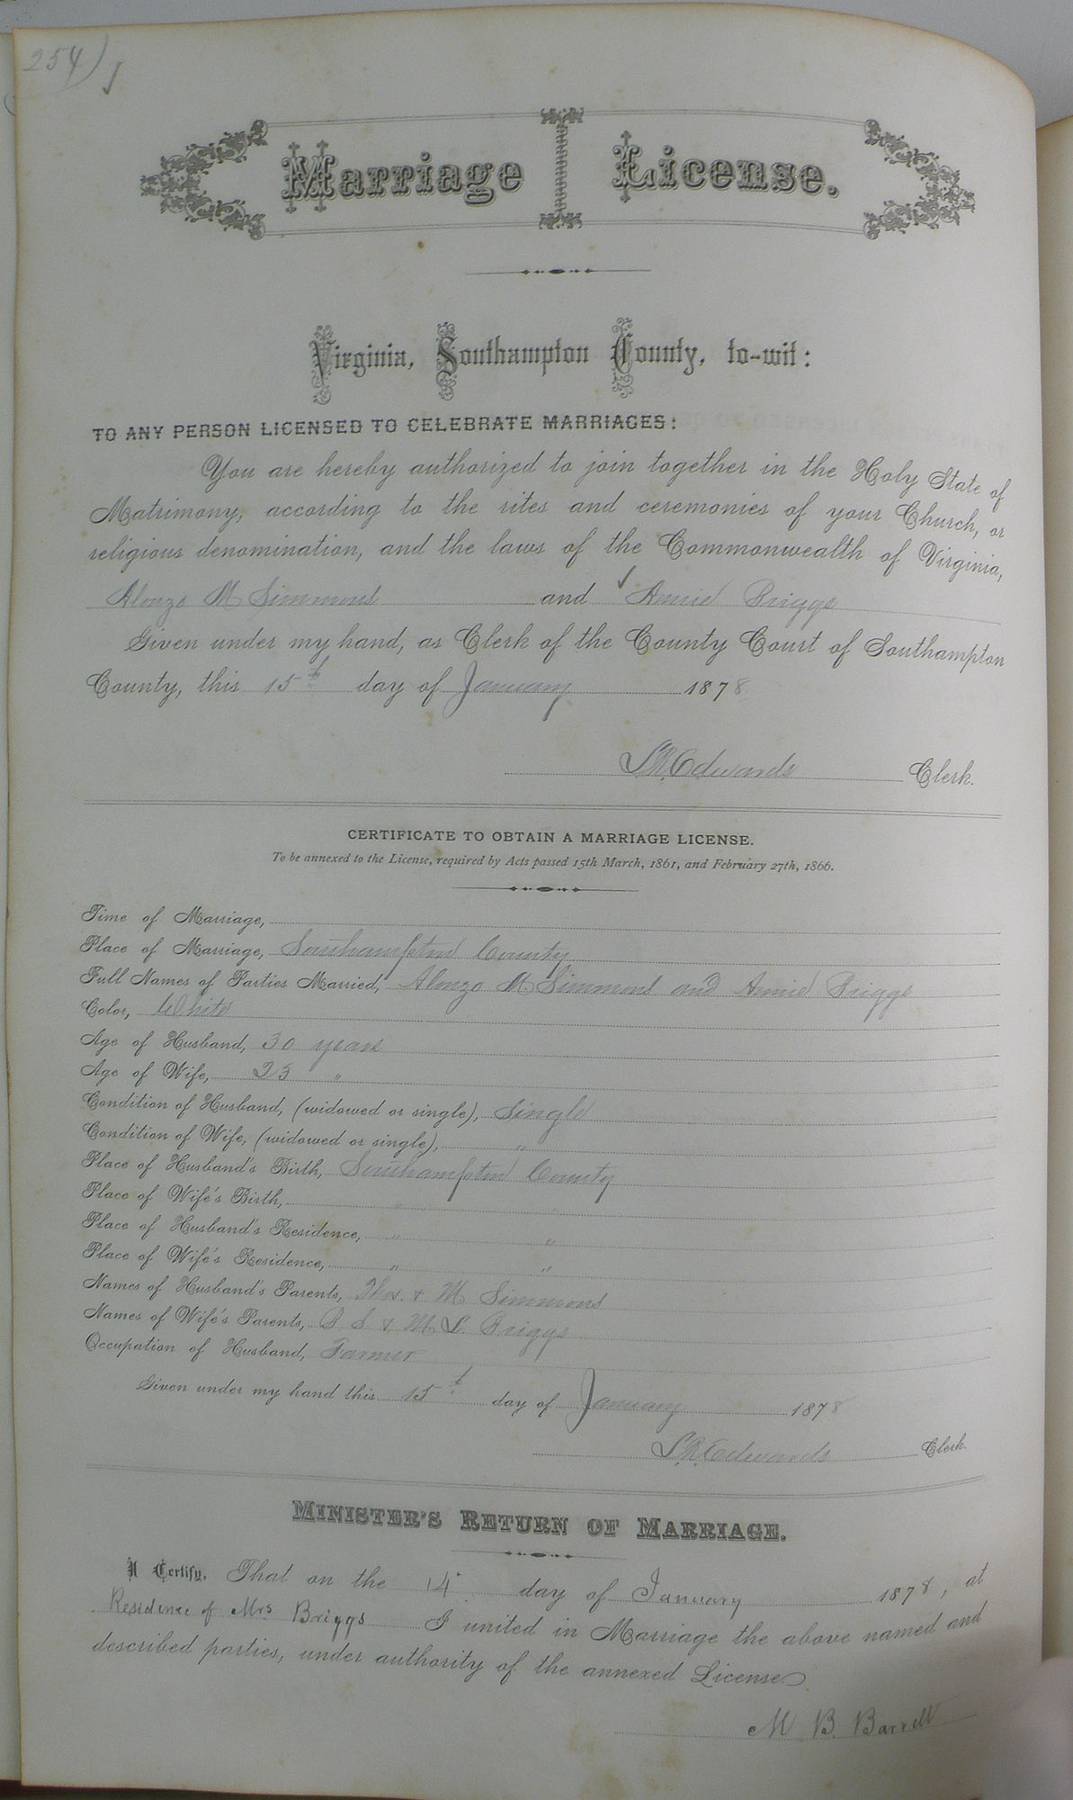 254)
Marriage License.
Virginia, Southampton County, to-wit:
TO ANY PERSON LICENSED TO CELEBRATE MARRIAGES:
You are hereby authorized to join together in the Holy State of
Matrimony, according to the rites and ceremonies of your Church, or
religious denomination, and the laws of the Commonwealth of Virginia,
Alonzo M Simmons and Annie Briggs
Given under my hand, as Clerk of the County Court of Southampton
County, this 15th day of January 1878
Edwards Clerk.
CERTIFICATE TO OBTAIN A MARRIAGE LICENSE.
To be annexed to the License, required by Acts passed 15th March, 1861, and February 27th, 1866.
Time of Marriage,
Place of Marriage, Southampton County
Full Names of Parties Married, Alonzo M Simmons and Annie Briggs
Color, White
Age of Husband, 30 years
Age of Wife, 23 "
Condition of Husband, (widowed or single), Single
Condition of Wife, (widowed or single), "
Place of Husband's Birth, Southampton County
Place of Wife's Birth, "
Place of Husband's Residence, " "
Place of Wife's Residence, " "
Names of Husband's Parents, Thos. & M Simmons
Names of Wife's Parents, & M. L. Briggs
Occupation of Husband, Farmer
Given under my hand this 15th day of January 1878
Edwards Clerk.
MINISTER'S RETURN OF MARRIAGE.
I Certify, That on the day of January 1878, at
Residence of Mrs Briggs I united in Marriage the above named and
described parties, under authority of the annexed License.
M B. Barrett